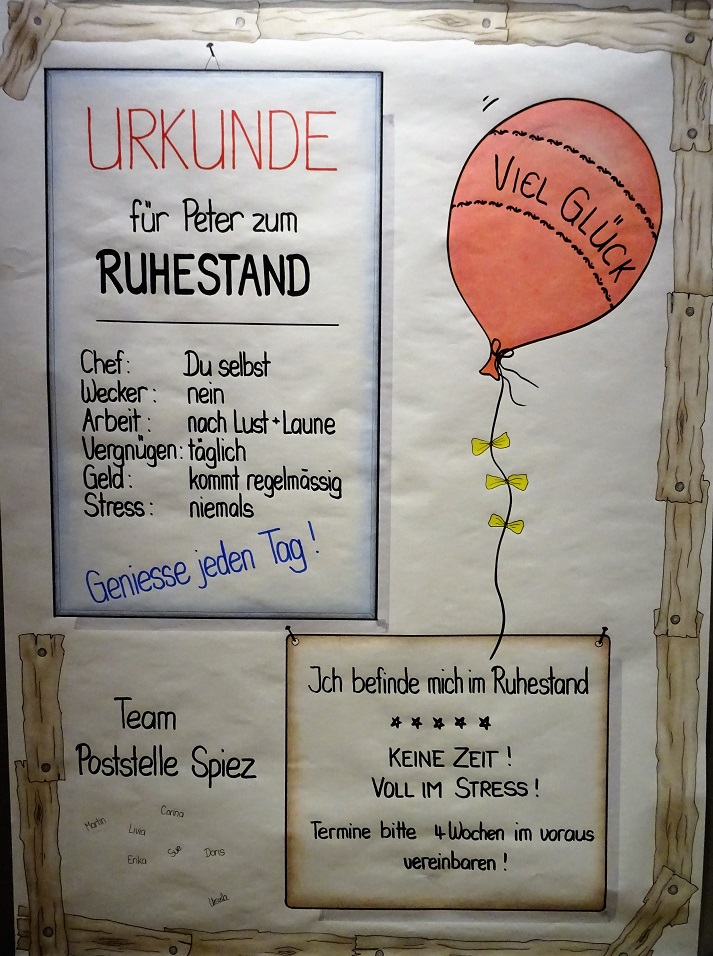 URKUNDE
für Peter zum
RUHESTAND
Chef: Du selbst
Wecker: nein
Arbeit: nach Lust+Laune
Vergnügen: täglich
Geld: kommt regelmässig
Stress: niemals
Geniesse jeden Tag!
VIEL GLÜCK
Ich befinde mich im Ruhestand
KEINE ZEIT!
VOLL IM STRESS!
Termine bitte 4 Wochen im voraus
vereinbaren!
Team
Poststelle Spiez
Corina
Martin
Livia
Erika
Sue
Doris
Ursula